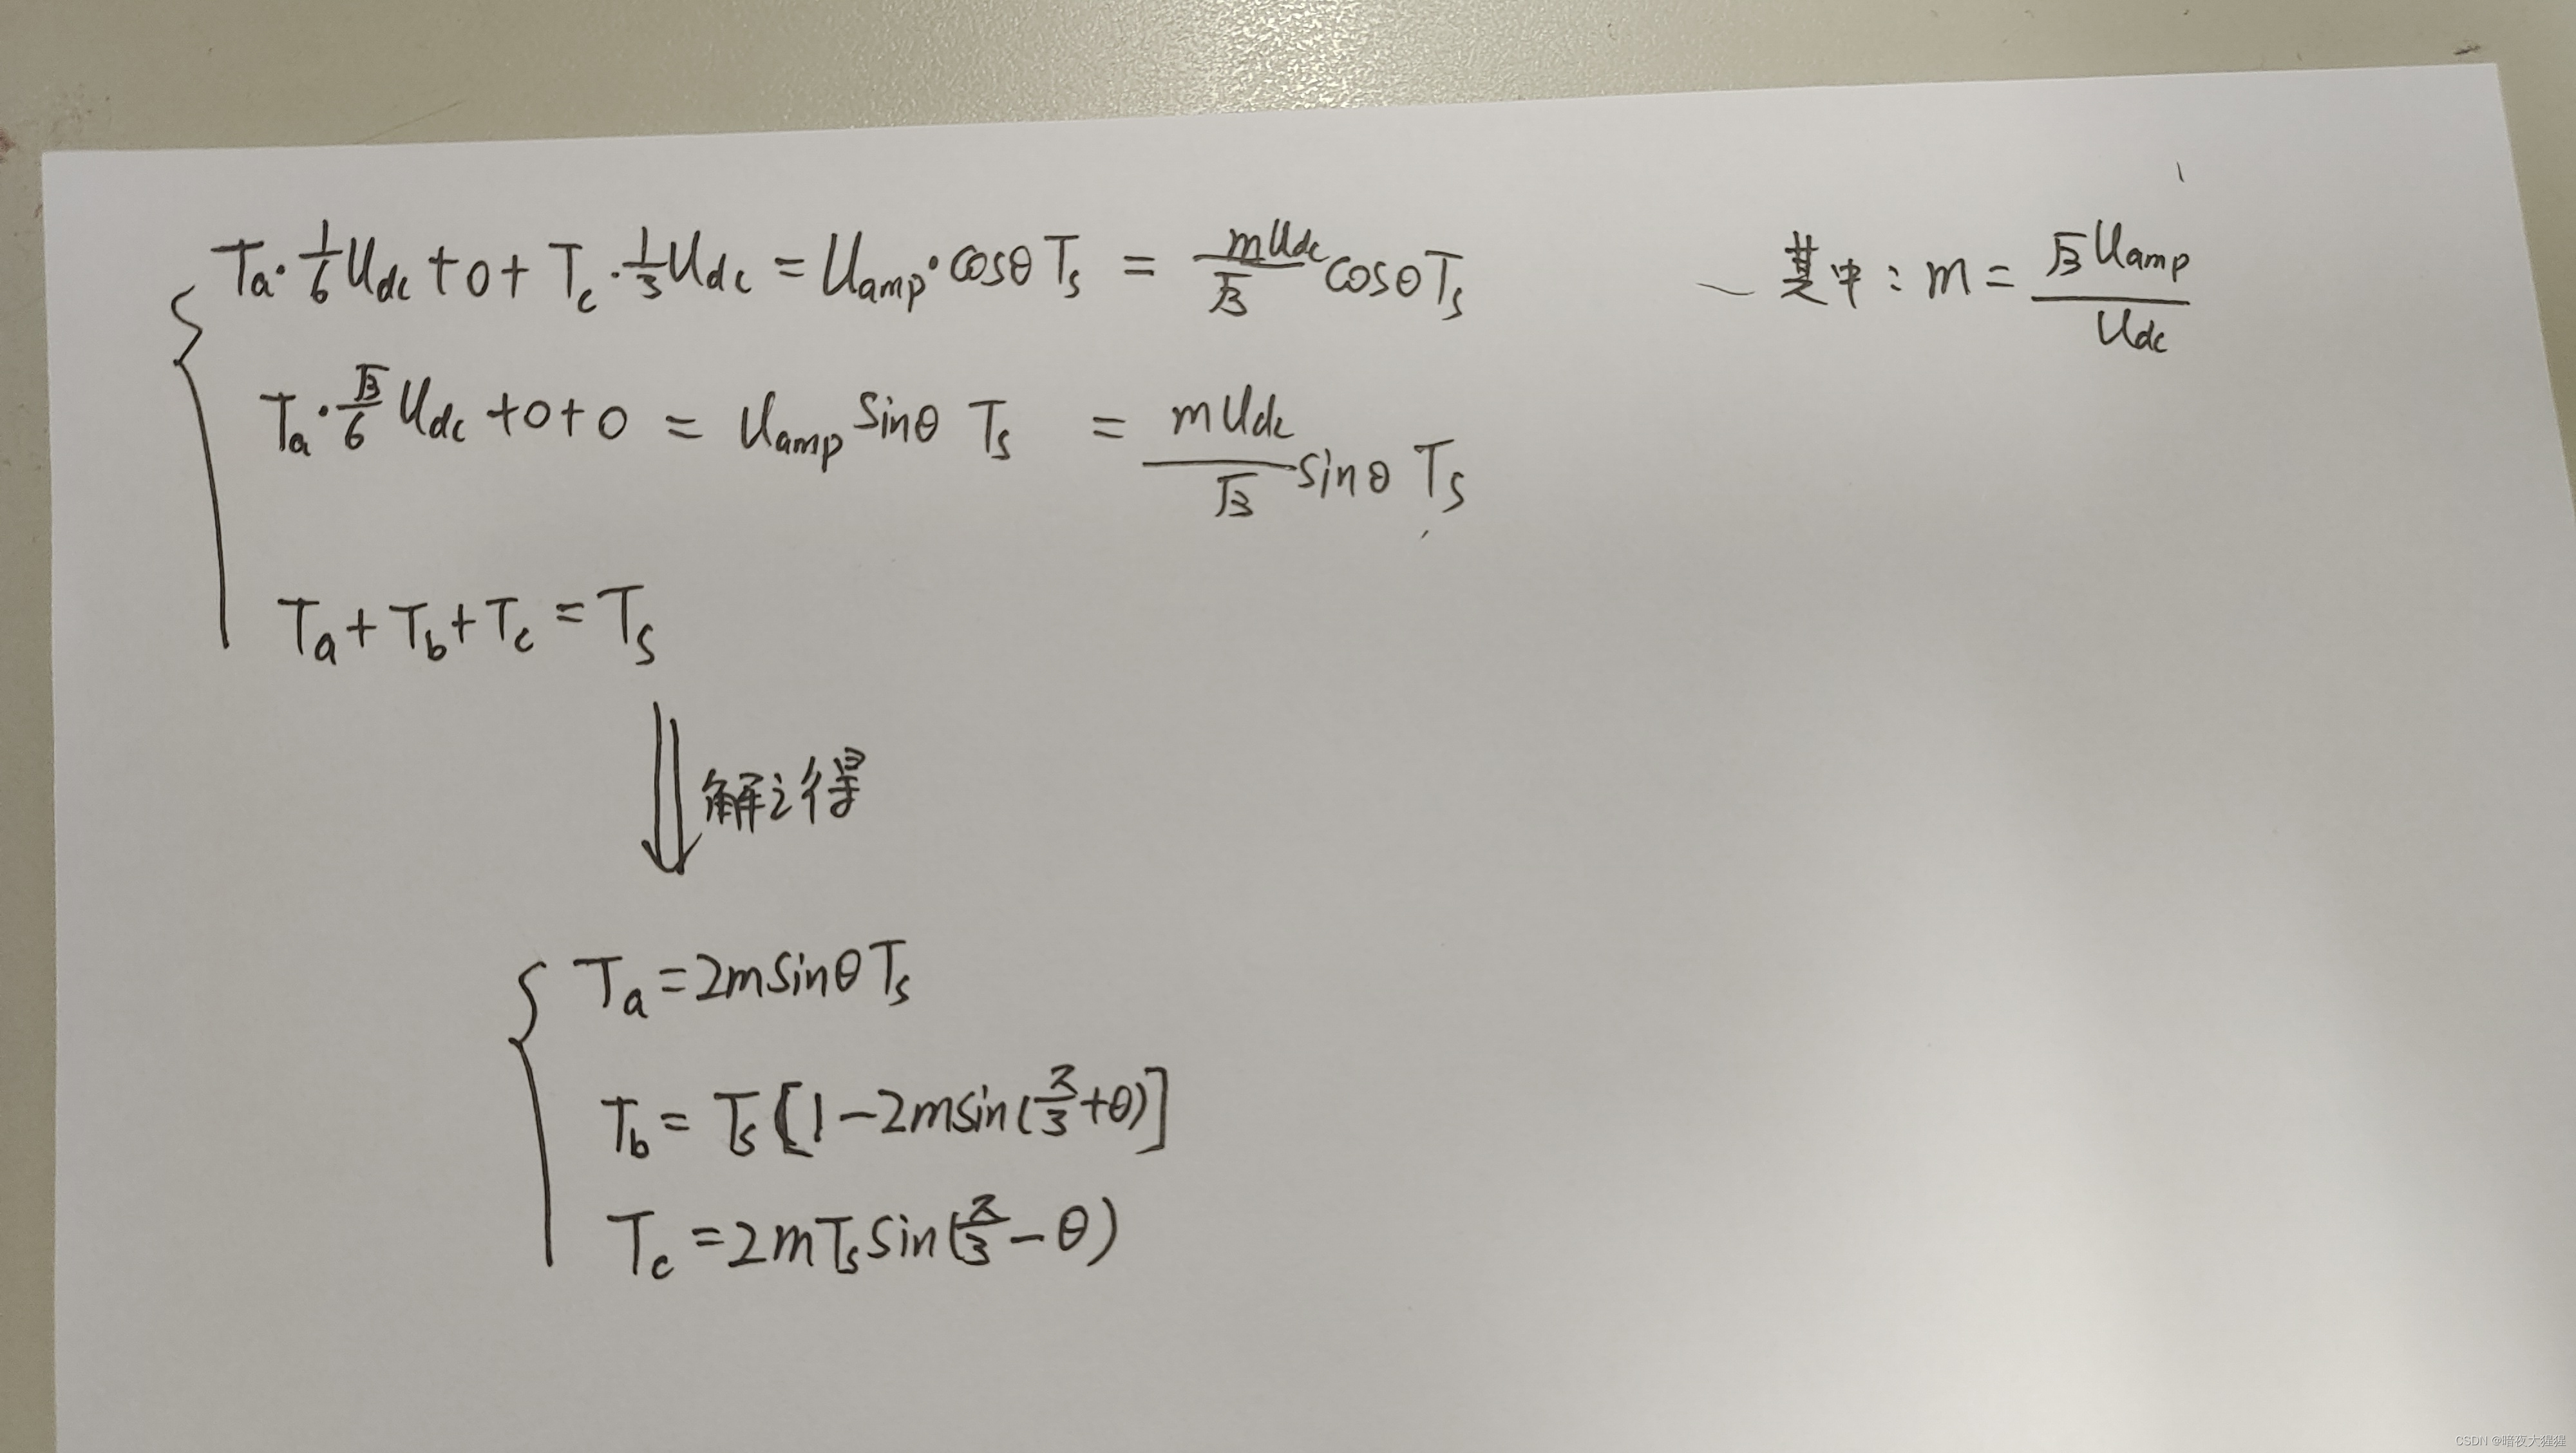 Ta·1/6 Udc + 0 + Tc·1/3 Udc = Uamp·cosθ Ts = mUdc/√3 cosθ Ts 其中：m = √3 Uamp/Udc
Ta·√3/6 Udc + 0 + 0 = Uamp sinθ Ts = mUdc/√3 sinθ Ts
Ta + Tb + Tc = Ts
解之得
Ta = 2m sinθ Ts
Tb = Ts [1 − 2m sin(π/3 + θ)]
Tc = 2m Ts sin(π/3 − θ)
CSDN @暗夜大猩猩